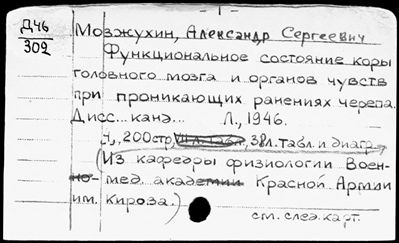 Д46
302
Мозжухин, Александр Сергеевич
Функциональное состояние коры
головного мозга и органов чувств
при проникающих ранениях черепа.
Дисс... канд... Л., 1946.
200 стр, VII л. табл., 38 л. табл. и диагр.
(Из кафедры физиологии Воен-
но-мед. академии Красной Армии
им. Кирова.)
см. след. карт.